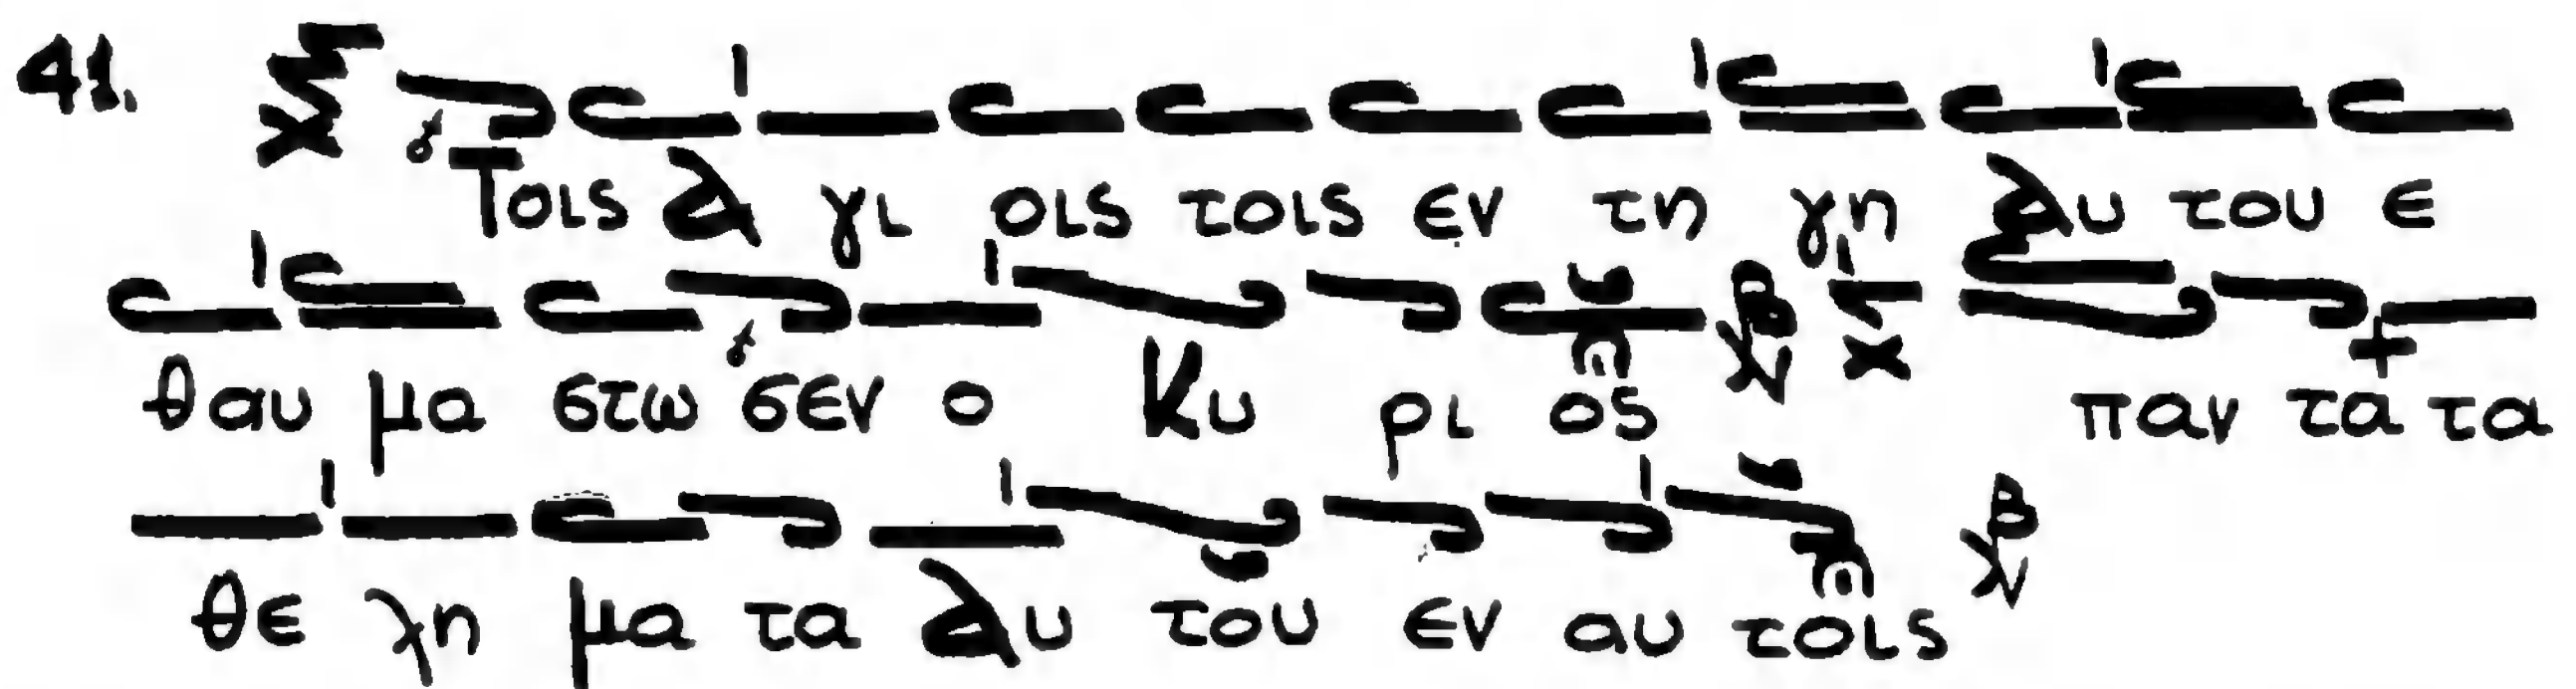 41. Τοις α γι οις τοις εν τη γη αυ του ε
θαυ μα στω σεν ο Κυ ρι ος παν τα τα
θε λη μα τα αυ του εν αυ τοις